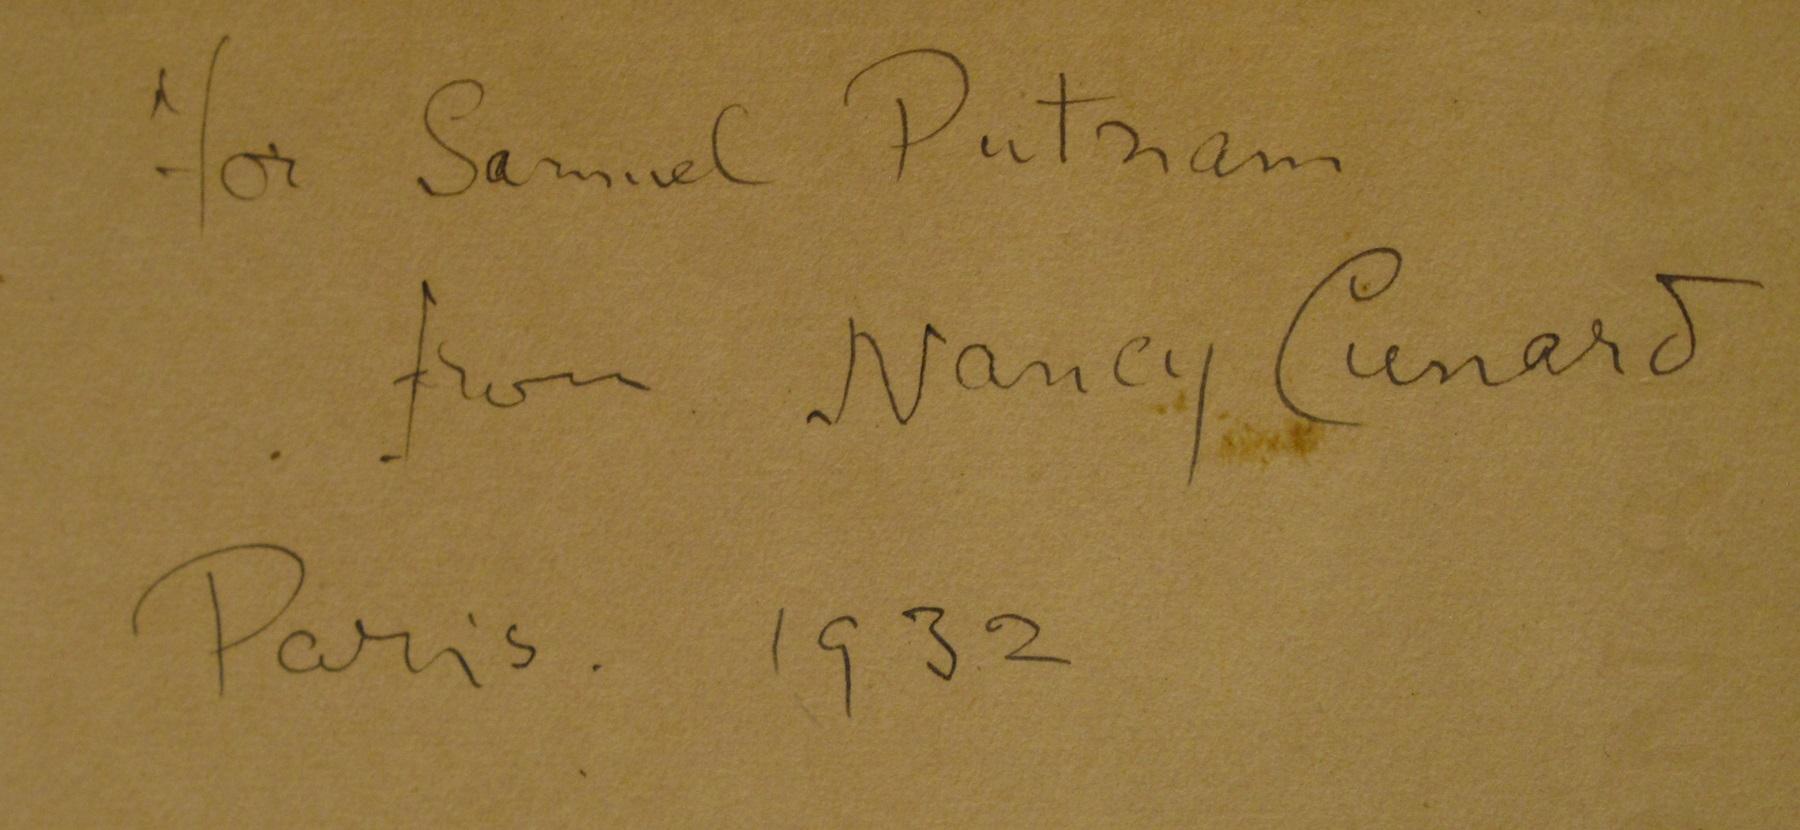 For Samuel Putnam
from Nancy Cunard
Paris. 1932